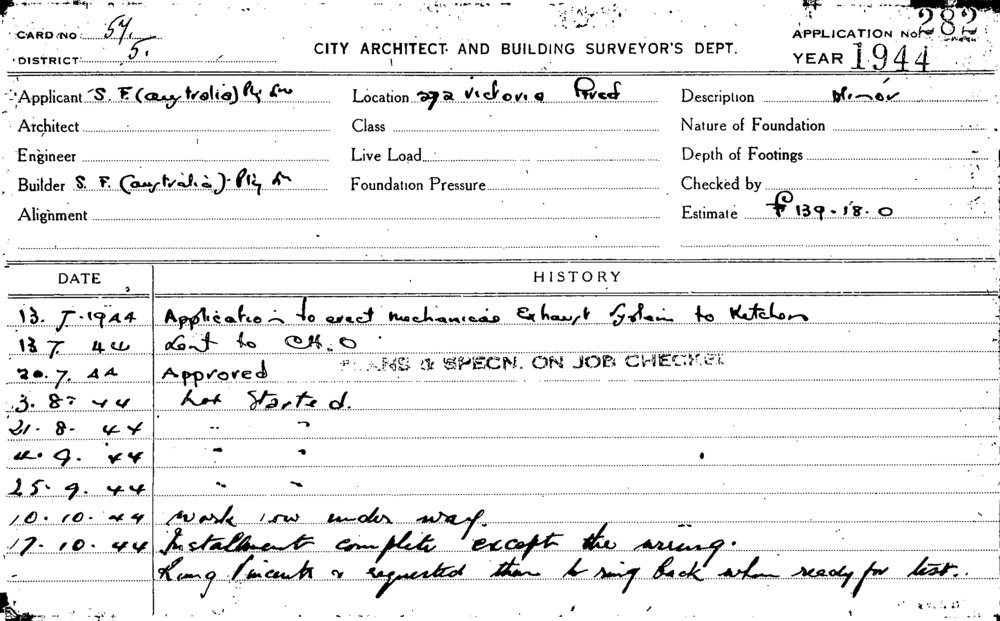 CARD NO 54.
DISTRICT 5.
CITY ARCHITECT AND BUILDING SURVEYOR'S DEPT.
APPLICATION No. 282
YEAR 1944
Applicant S. F. (australia) Pty Ltd
Location 272 Victoria
Description Minor
Architect
Class
Nature of Foundation
Engineer
Live Load
Depth of Footings
Builder S. F. (australia) Pty Ltd
Foundation Pressure
Checked by
Alignment
Estimate £ 139.18.0
DATE
HISTORY
13. 7. 1944 Application to erect mechanical Exhaust System to Kitchen
13 7. 44 Sent to C.H.O
20. 7. 44 Approved PLANS & SPECN. ON JOB CHECKED
3. 8. 44 Not Started.
21. 8. 44 " "
4. 9. 44 " "
25. 9. 44 " "
10. 10. 44 Work now under way.
17. 10. 44 Installment complete except the wiring.
Rang & requested them to ring back when ready for test.